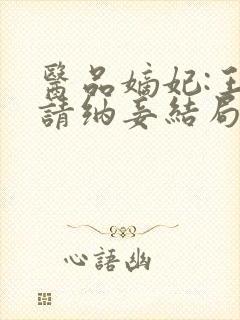 醫品嫡妃:王
請納妾結局
心語幽